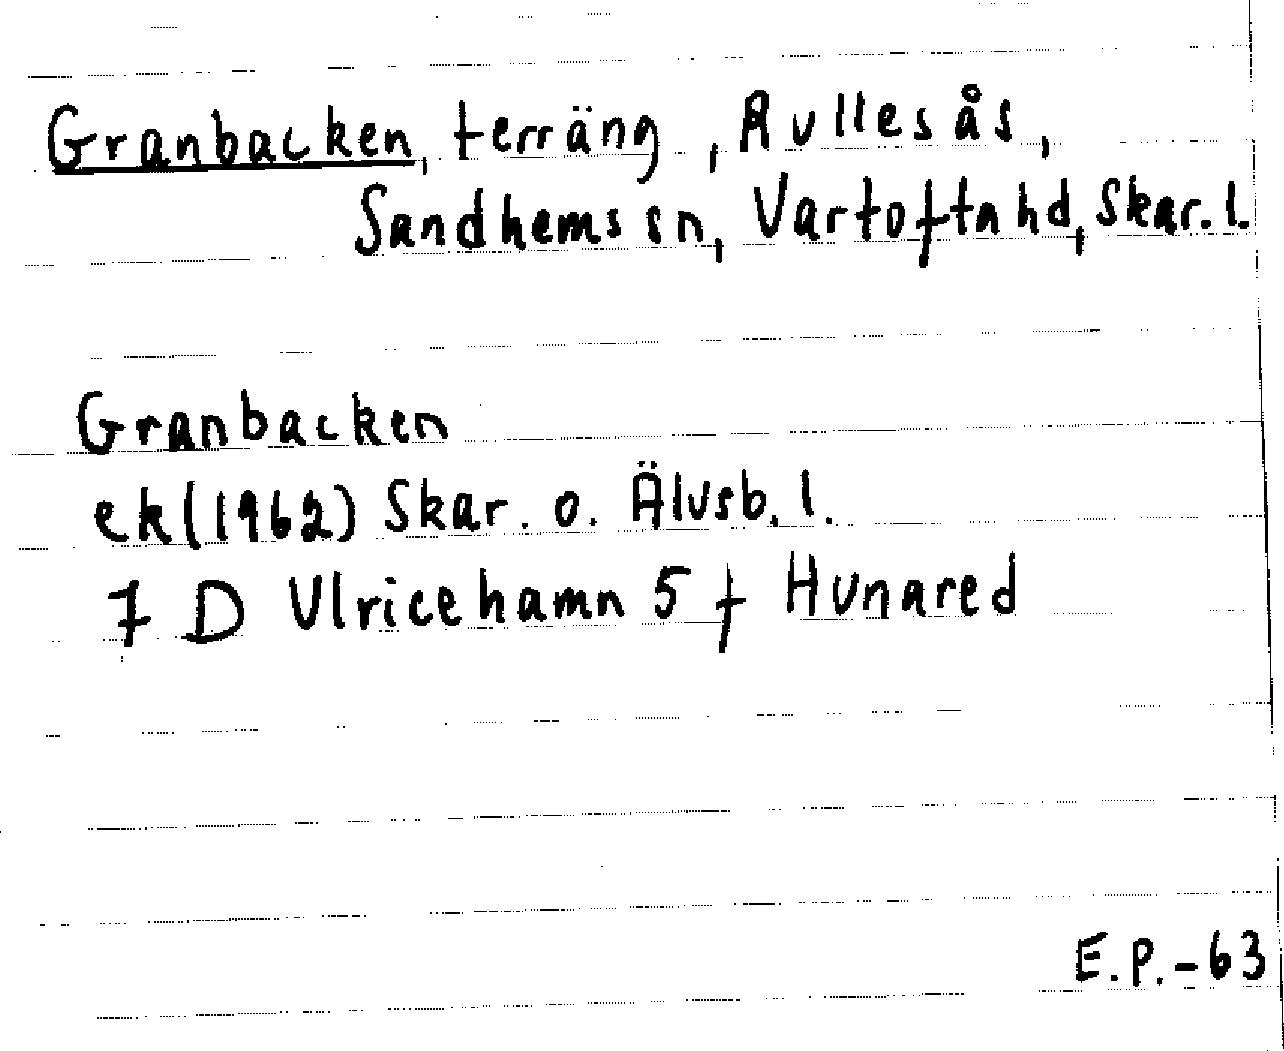 Granbacken, terräng, Rullesås,
Sandhems sn, Vartofta hd, Skar. l.
Granbacken
ek (1962) Skar. o. Älvsb. l.
7 D Ulricehamn 5 f Hunared
E.P.-63